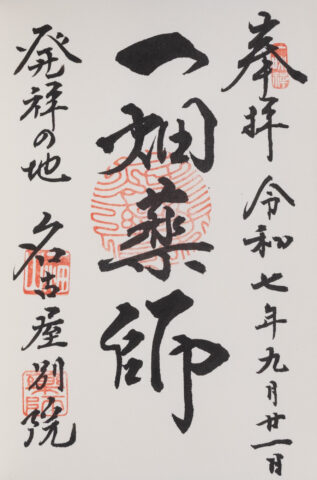 奉拝 令和七年九月廿一日
一畑薬師
発祥の地 名古屋別院